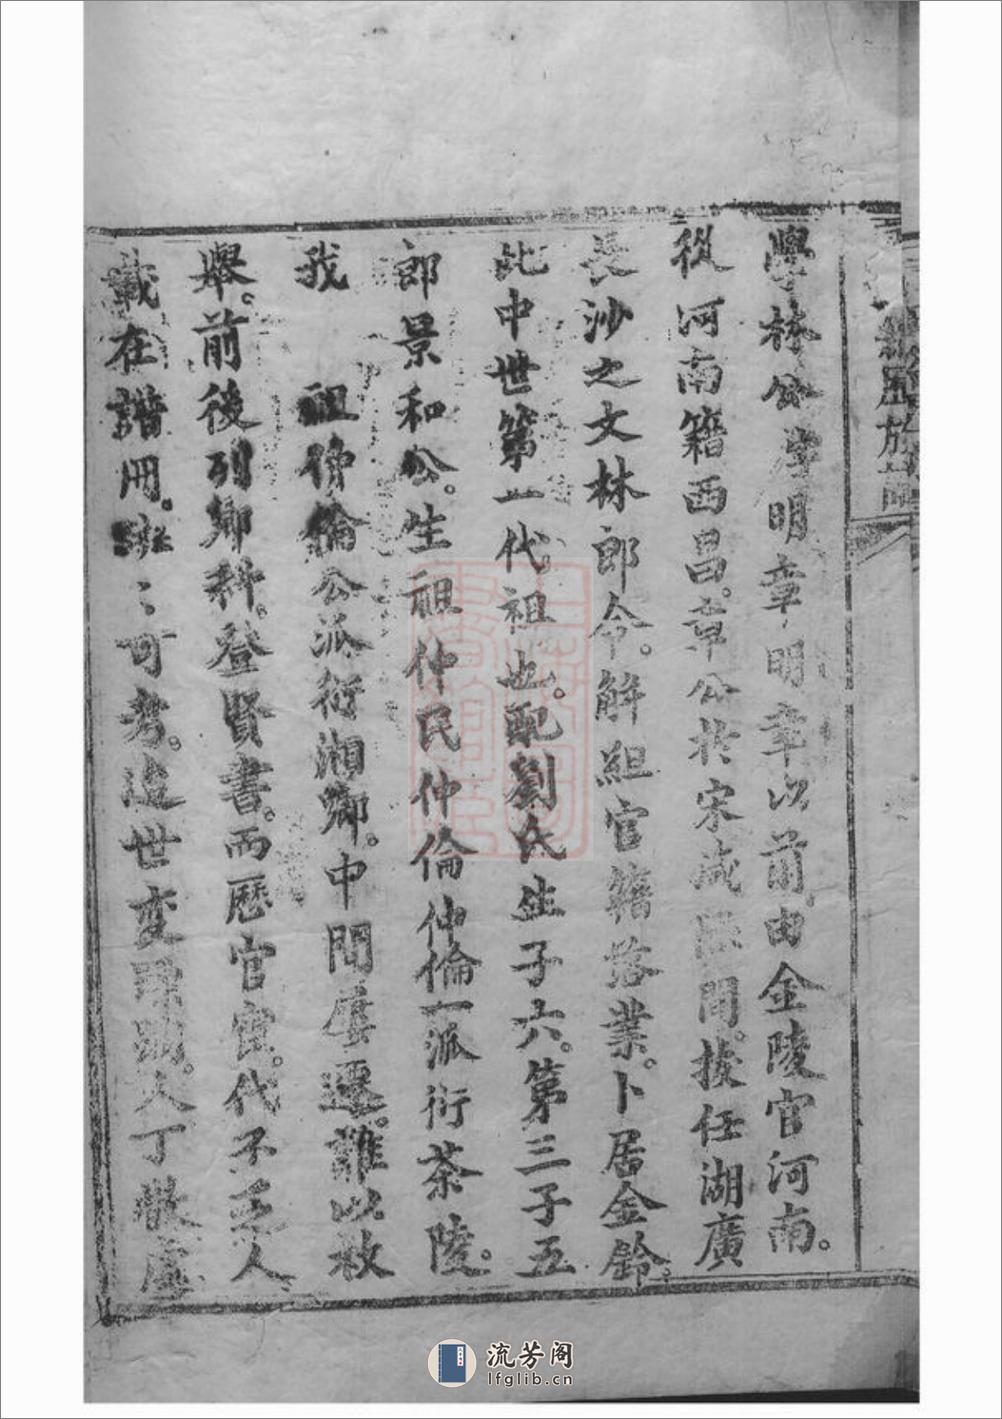 學林公生明章明章以前由金陵官河南。
從河南籍西昌。章公於宋咸間。拔任湖廣
長沙之文林郎令。解組官籍落業。卜居金鈴
此中世第一代祖也。配劉氏生子六。第三子五
郎景和公。生祖仲民仲倫仲倫一派衍茶陵。
我 祖仲倫公派衍湘鄉。中間屢遷。難以枚
舉。前後列鄉科。登賢書。而歷官宦。代不乏人
載在譜冊。班〻可考。迨世變人丁散處
流芳阁
lfglib.cn